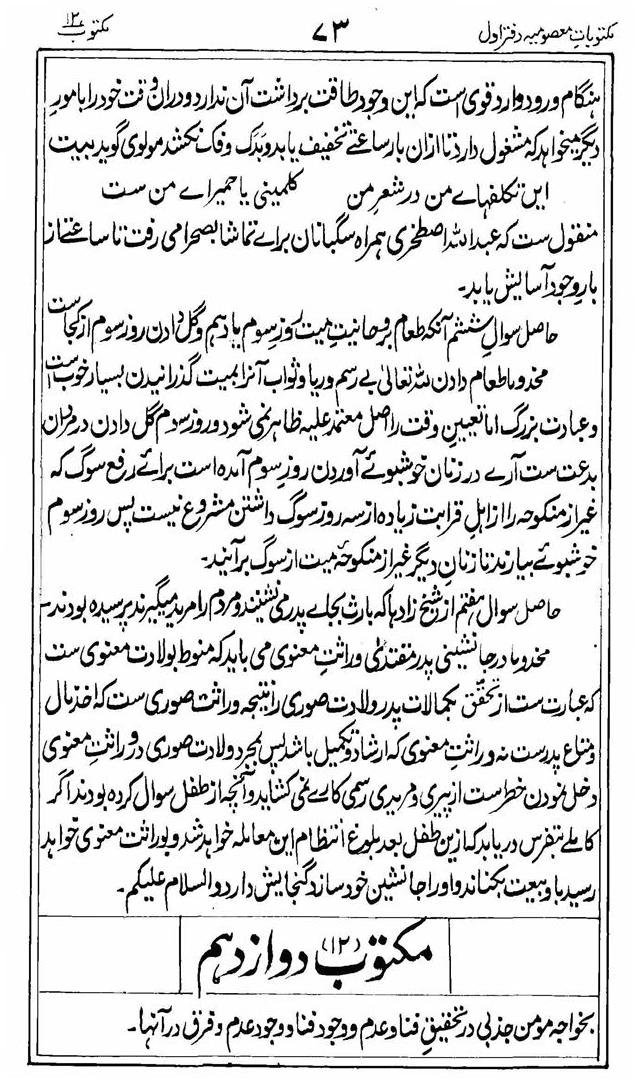 مکتوباتِ معصومیہ دفتر اول ۷۳ مکتوب ۱۲
ہنگام ورود وارد قوی است کہ این وجود طاقت برداشت آن ندارد دران وقت خود را بامورِ
دیگر میخواہد کہ مشغول دارد تا ازان بار ساعتے تخفیف یابد و یدک و فک نکشد مولوی گوید بیت
این تکلفہاے من در شعرِ من کلمینی یا حمیراے من ست
منقول ست کہ عبداللہ اصطخری ہمراہ سگبانان براے تماشا بصحرا می رفت تا ساعتے از
بارِ وجود آسایش یابد۔
حاصل سوالِ ششم آنکہ طعام بروحانیتِ میت بروزِ سوم یا دہم و گل دادن روز سوم از کجاست
مخدوما طعام دادن للہ تعالیٰ بے رسم و ریا و ثواب آنرا بمیت گذرانیدن بسیار خوب است
و عبادت بزرگ اما تعیینِ وقت را اصل معتمد علیہ ظاہر نمی شود و روز سوم گل دادن در مردان
بدعت ست آرے در زنان خوشبوئے آوردن روزِ سوم آمدہ است براے رفعِ سوگ کہ
غیر از منکوحہ را از اہلِ قرابت زیادہ از سہ روز سوگ داشتن مشروع نیست پس روز سوم
خوشبوئے بیارند تا زنانِ دیگر غیر از منکوحۂ میت از سوگ برآیند۔
حاصل سوال ہفتم از شیخ زادہا کہ بارث بجاے پدر می نشیند و مردم را مرید میگیرند پرسیدہ بودند
مخدوما در جانشینی پدر مقتدیٰ وراثتِ معنوی می باید کہ منوط بولادت معنوی ست
کہ عبارت ست از تحقق بکمالات پدر ولادتِ صوری را نتیجہ وراثت صوری ست کہ اخذ مال
و متاع پدرست نہ وراثتِ معنوی کہ ارشاد و تکمیل باشد پس بمجرد ولادت صوری در وراثتِ معنوی
دخل نمودن خطر است از پیری و مریدی رسمی کارے نمی کشاید و آنچہ از طفل سوال کردہ بودند اگر
کاملے بتفرس دریابد کہ ازین طفل بعد بلوغ انتظام این معاملہ خواہد شد و بوراثت معنوی خواہد
رسید باو بیعت بکناند و او را جانشین خود سازد گنجایش دارد والسلام علیکم۔
مکتوب (۱۲) دوازدہم
بخواجہ مومن جذبی در تحقیقِ فنا و عدم و وجود فنا و وجود عدم و فرق در آنہا۔